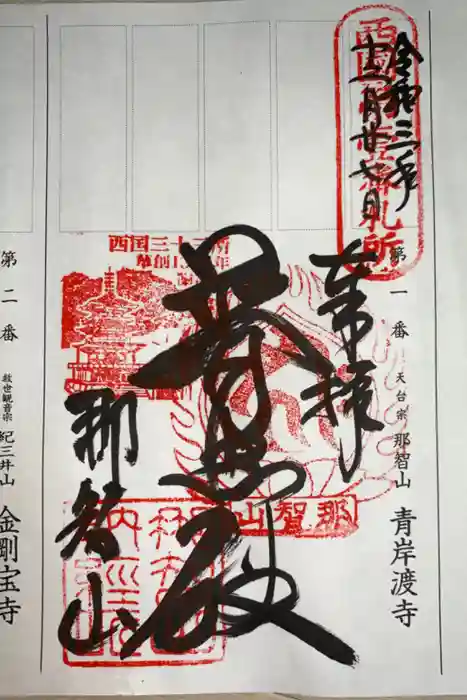 令和三年
十二月廿七日
西国第壱番札所
第一番 天台宗 那智山 青岸渡寺
奉拝
普照殿
那智山
西国三十三所
草創1300年
那智山
第二番 救世観音宗 紀三井山 金剛宝寺